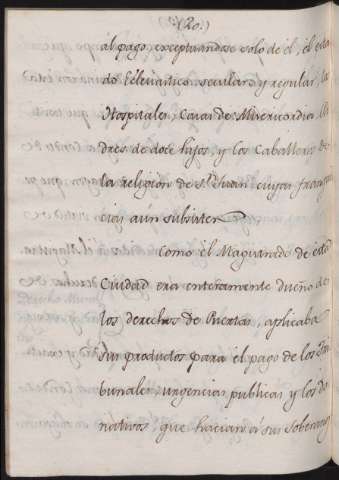 (20.)
al pago, exceptuandose solo de él, el esta
do Eclesiastico secular, y regular, los
Hospitales, Casas de Misericordia, Pa
dres de doce hijos, y los Caballeros de
la religion de Sn. Juan cuyas franqui
cias aún subsisten
Como el Magistrado de esta
Ciudad era enteramente dueño de
los derechos de Puertas, aplicaba
sus productos para el pago de los Tri
bunales, urgencias publicas, y los do
nativos, que hacian á sus Soberanos